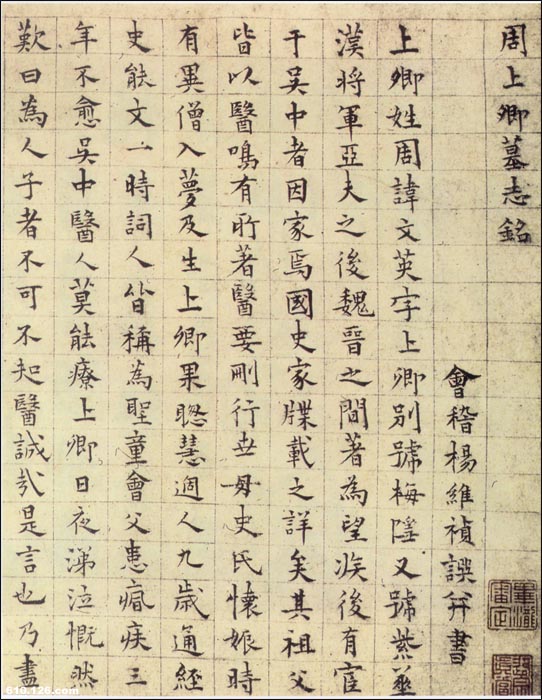 周上卿墓志銘
會稽楊維禎譔并書
上卿姓周諱文英字上卿別號梅隱又號紫華
漢將軍亞夫之後魏晉之間著為望族後有宦
于吳中者因家焉國史家牒載之詳矣其祖父
皆以醫鳴有所著醫要刪行世母史氏懷娠時
有異僧入夢及生上卿果聰慧過人九歲通經
史能文一時詞人皆稱為聖童會父患痟疾三
年不愈吳中醫人莫能療上卿日夜涕泣慨然
歎曰為人子者不可不知醫誠哉是言也乃盡
610.126.com